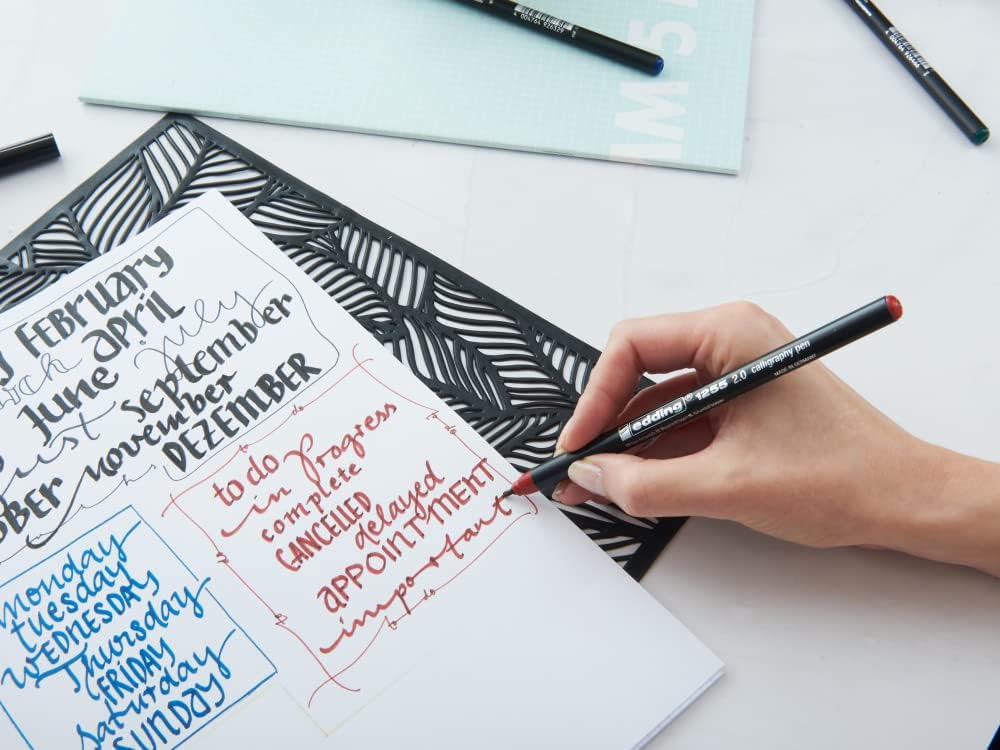 FEBRUARY
June April July
September
November
DEZEMBER
monday
tuesday
WEDNESDAY
Thursday
FRIDAY
saturday
SUNDAY
to do
in progress
complete
CANCELLED
delayed
APPOINTMENT
important
edding® 1255 2.0 calligraphy pen
MADE IN GERMANY
4 004764 926329